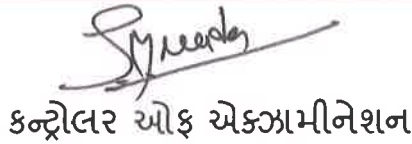 કન્ટ્રોલર ઓફ એક્ઝામીનેશન